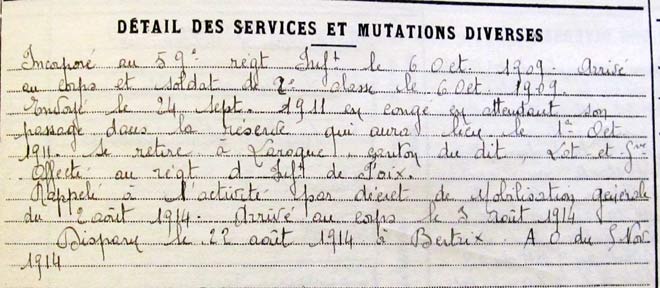 DÉTAIL DES SERVICES ET MUTATIONS DIVERSES
Incorporé au 59e régt Inft le 6 Oct. 1909. Arrivé
au corps et soldat de 2e classe le 6 Oct 1909.
Envoyé le 24 sept. 1911 en congé en attendant son
passage dans la réserve qui aura lieu le 1er Oct
1911. Se retire à Laroque, canton du dit, Lot et Gne
Affecté au régt d'Inft de Foix.
Rappelé à l'activité par décret de Mobilisation générale
du 2 août 1914. Arrivé au corps le 3 août 1914
Disparu le 22 août 1914 à Bertrix. A O du 5 Nov.
1914